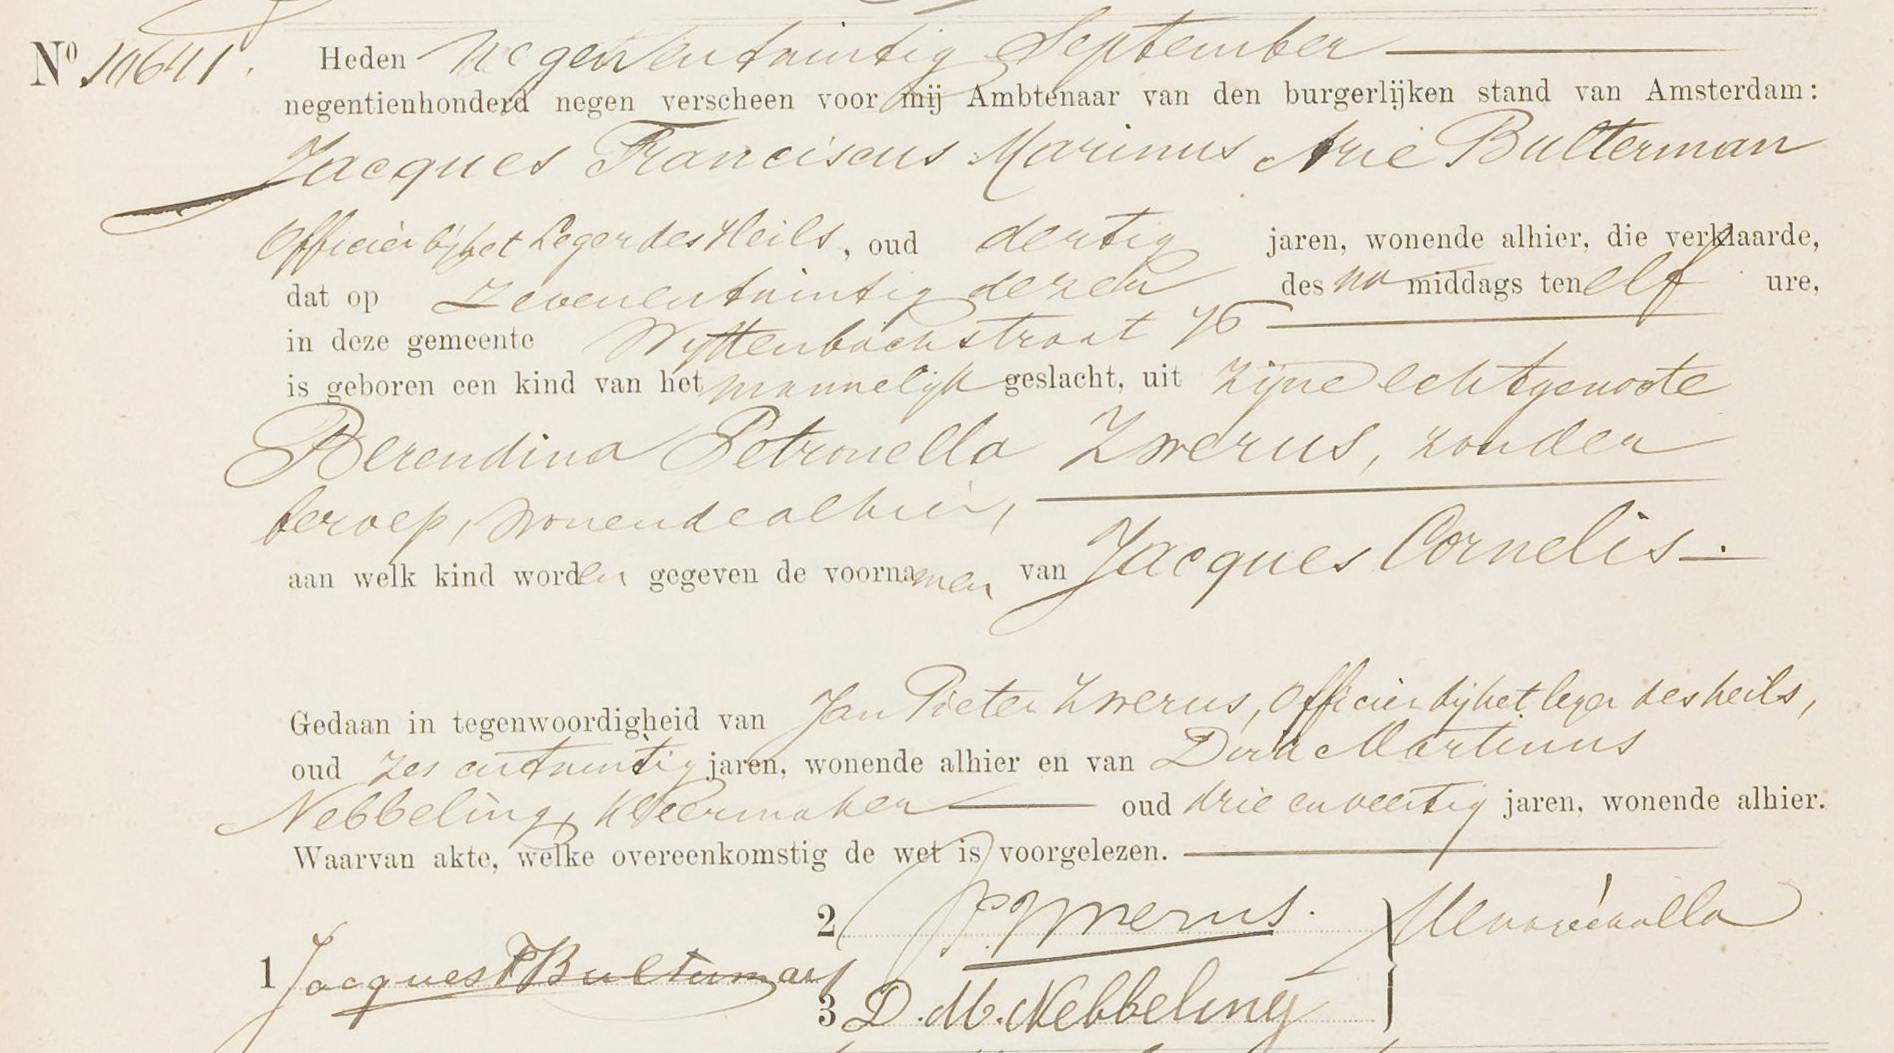 Nº 10641. Heden negenentwintig September
negentienhonderd negen verscheen voor mij Ambtenaar van den burgerlijken stand van Amsterdam:
Jacques Franciscus Marinus Arie Bulterman
Officier bij het Leger des Heils, oud dertig jaren, wonende alhier, die verklaarde,
dat op zevenentwintig dezer des na middags ten elf ure,
in deze gemeente Wyttenbachstraat 76
is geboren een kind van het mannelijk geslacht, uit zijne echtgenoote
Berendina Petronella Zwerus, zonder
beroep, wonende alhier,
aan welk kind worden gegeven de voornamen van Jacques Cornelis.
Gedaan in tegenwoordigheid van Jan Pieter Zwerus, Officier bij het leger des heils,
oud zes entwintig jaren, wonende alhier en van Dirk Martinus
Nebbeling, kleermaker oud drie en veertig jaren, wonende alhier.
Waarvan akte, welke overeenkomstig de wet is voorgelezen.
2 J.P. Zwerus.
1 Jacques F Bulterman
3 D. M. Nebbeling